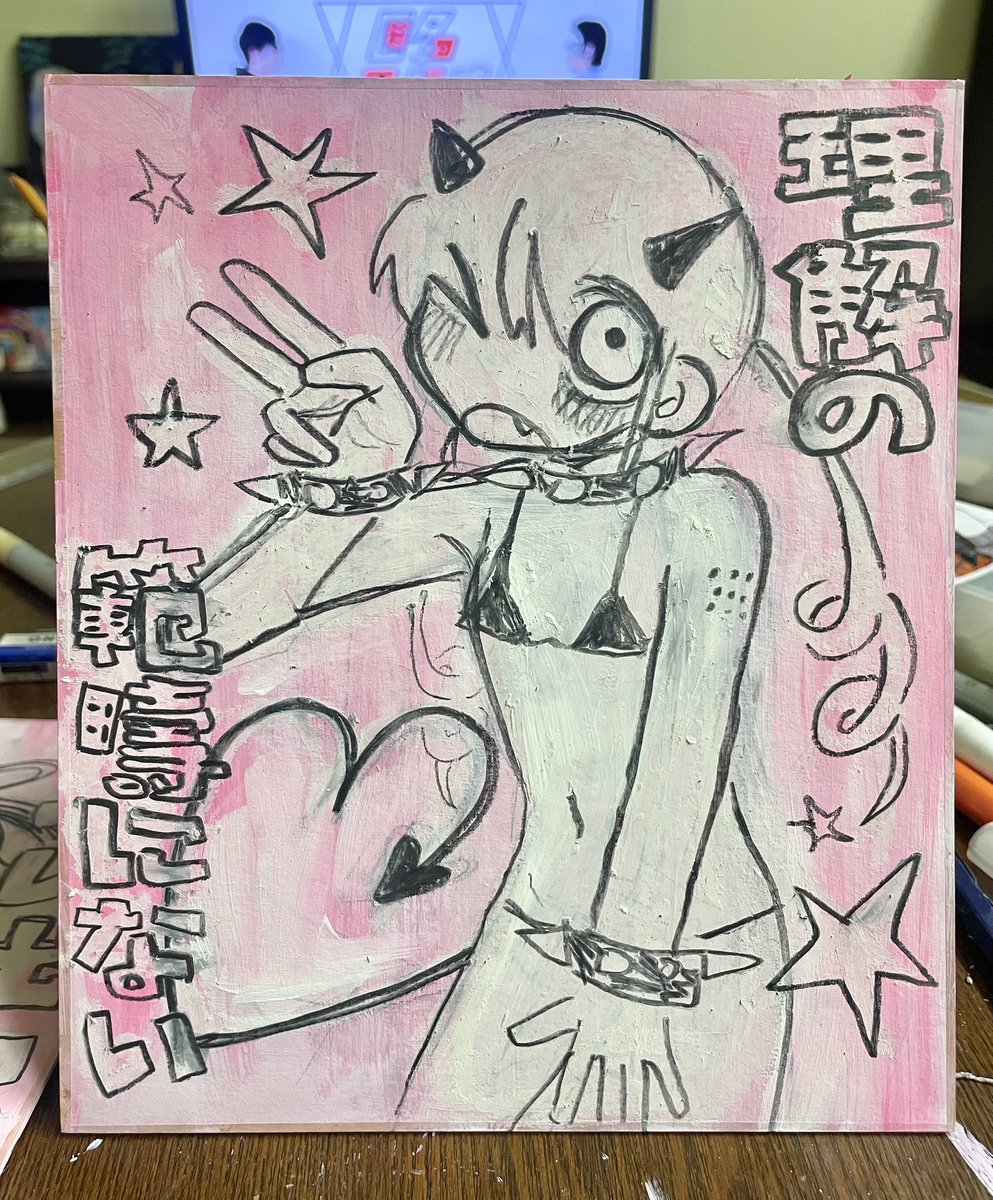 理解の
範疇にない